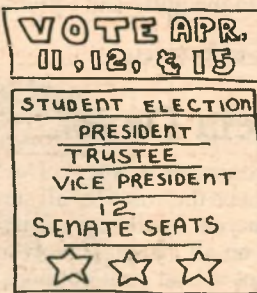 VOTE APR.
11, 12, & 15
STUDENT ELECTION
PRESIDENT
TRUSTEE
VICE PRESIDENT
12
SENATE SEATS